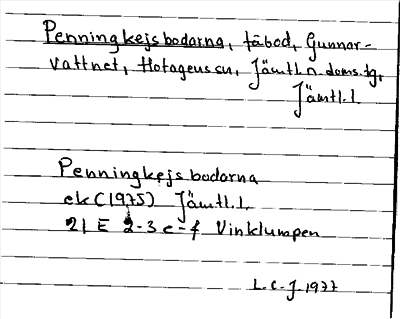 Penningkejsbodarna, fäbod, Gunnar-
vattnet, Hotagens sn, Jämtl. n. doms. tg,
Jämtl. l.
Penningkejsbodarna
ek (1975) Jämtl. l.
21 E 2-3 e-f Vinklumpen
L. C. J. 1977